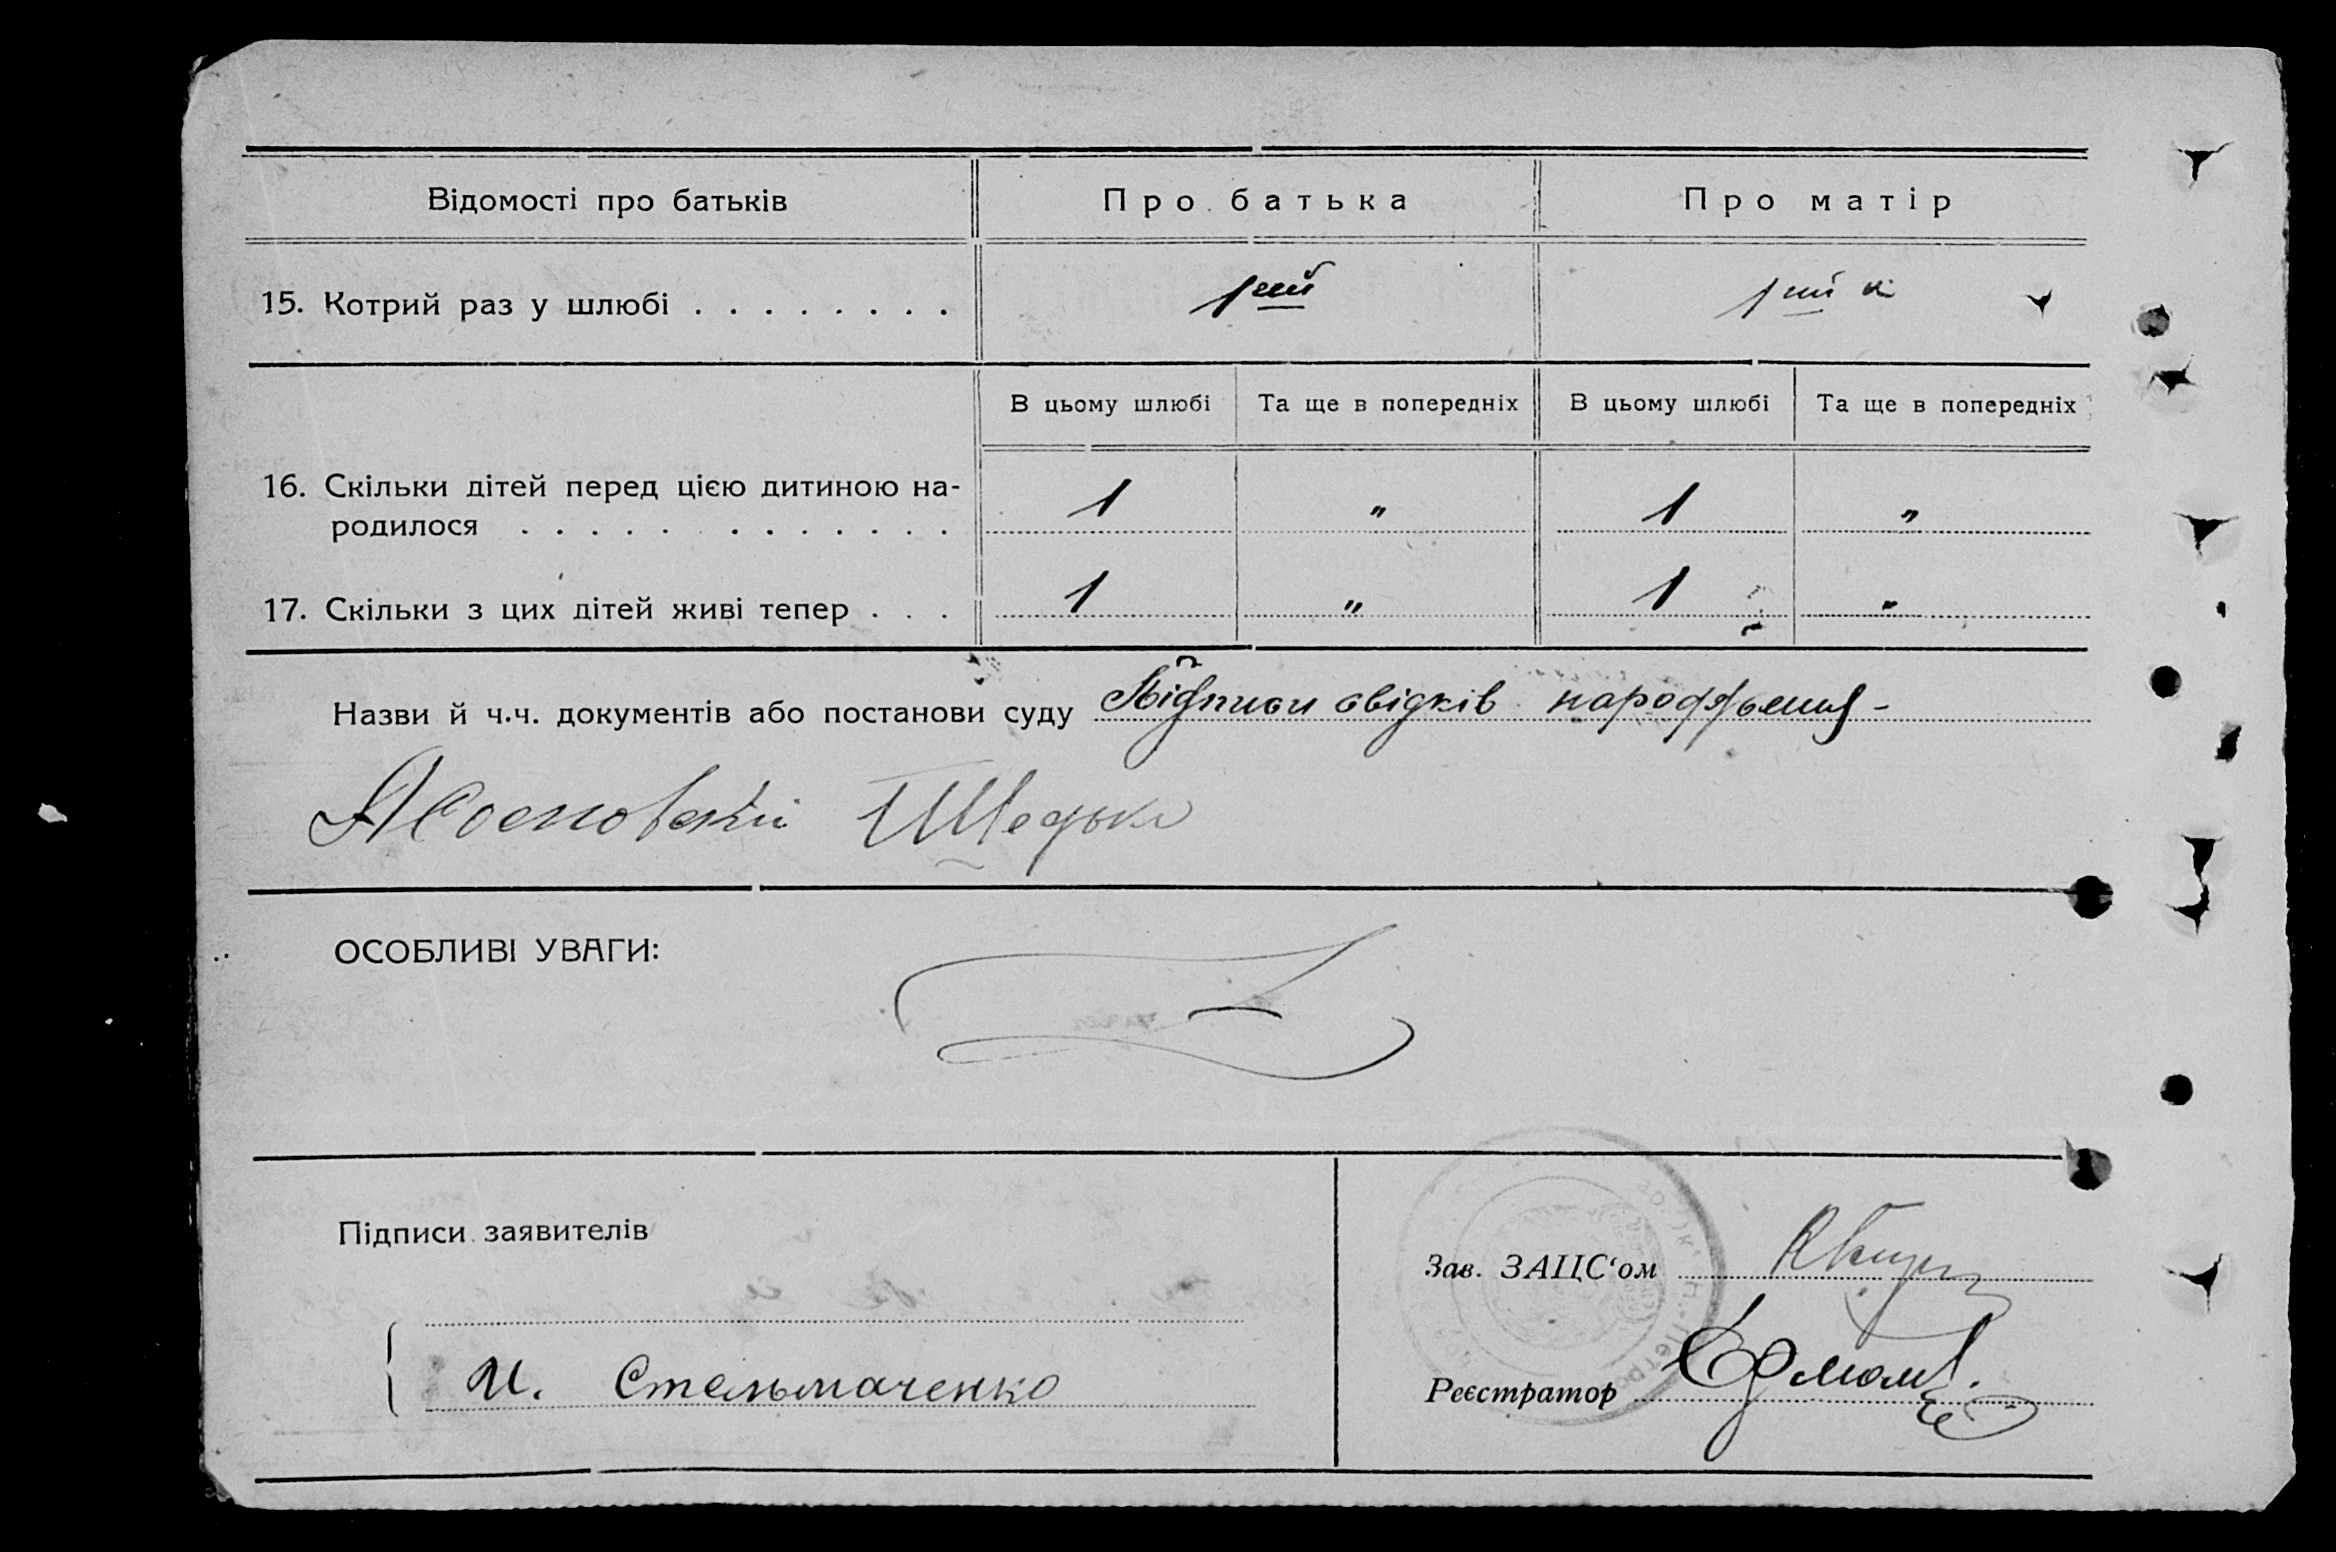 Відомості про батьків Про батька Про матір
15. Котрий раз у шлюбі . . . . . . . . 1ший 1ший
В цьому шлюбі Та ще в попередніх В цьому шлюбі Та ще в попередніх
16. Скільки дітей перед цією дитиною на-
родилося . . . . . . . . . . . . 1 " 1 "
17. Скільки з цих дітей живі тепер . . . 1 " 1 "
Назви й ч.ч. документів або постанови суду Підписи свідків народження -
ОСОБЛИВІ УВАГИ:
Підписи заявителів
Зав. ЗАЦС‘ом
И. Стельмаченко
Реєстратор